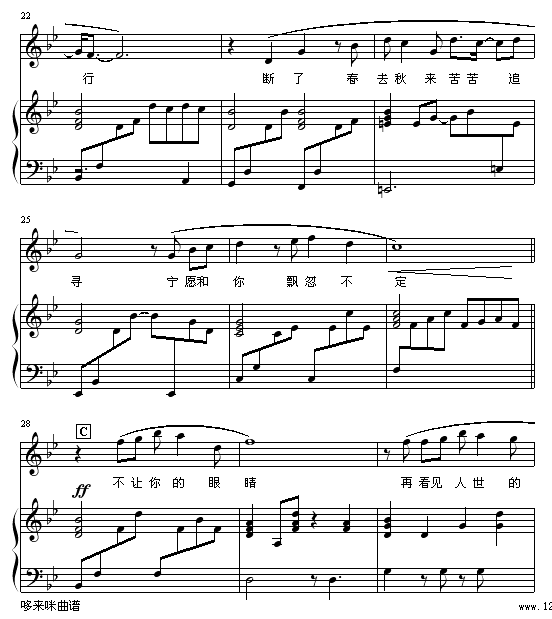 22
行 断了 春去秋来苦苦 追
25
寻 宁愿和 你 飘忽 不 定
28
C
ff
不让你的 眼 睛 再看见 人世的
哆来咪曲谱
www.12